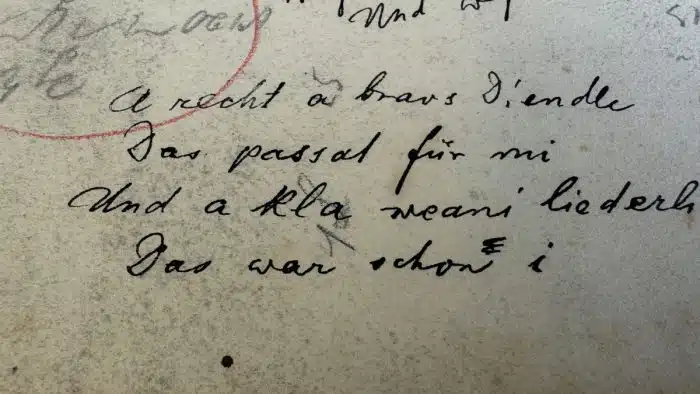 Und
A recht a bravs Diendle
Das passat für mi
Und a kla weani liederli
Das war schon i